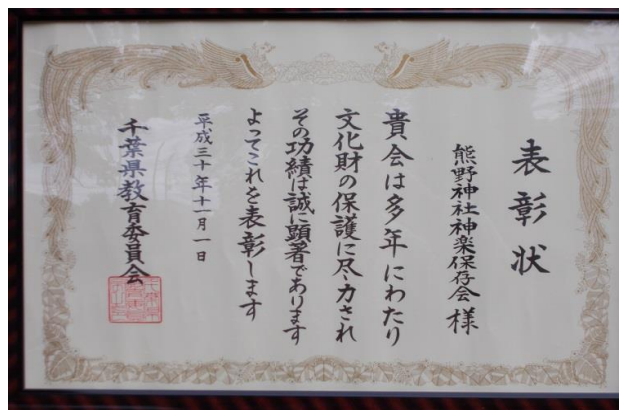 表彰状
熊野神社神楽保存会 様
貴会は多年にわたり
文化財の保護に尽力され
その功績は誠に顕著であります
よってこれを表彰します
平成三十年十一月一日
千葉県教育委員会